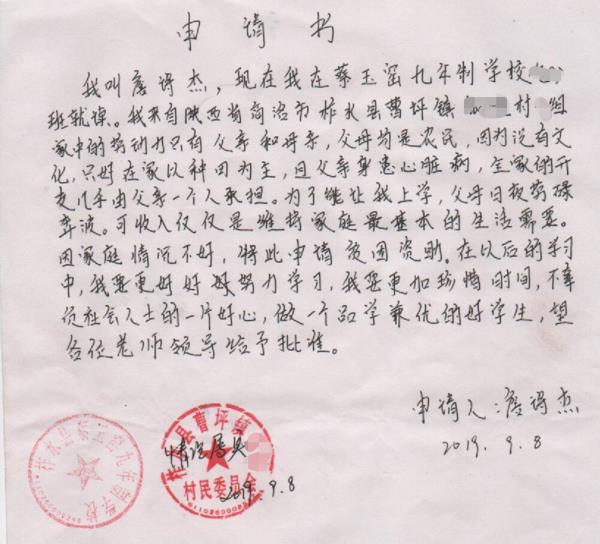 申请书
我叫唐诗杰，现在我在蔡玉窑九年制学校
班就读。我来自陕西省商洛市柞水县曹坪镇 村 组
家中的劳动力只有父亲和母亲，父母均是农民，因为没有文
化，只好在家以种田为主，且父亲身患心脏病，全家的开
支几乎由父亲一个人承担。为了能让我上学，父母日夜劳碌
奔波。可收入仅仅是维持家庭最基本的生活需要。
因家庭情况不好，特此申请贫困资助。在以后的学习
中，我要更好好好努力学习，我要更加珍惜时间，不辜
负社会人士的一片好心，做一个品学兼优的好学生，望
各位老师领导给予批准。
申请人：唐诗杰
2019. 9. 8
柞水县蔡玉窑九年制学校
柞水县曹坪镇
情况属实
村民委员会
2019. 9. 8